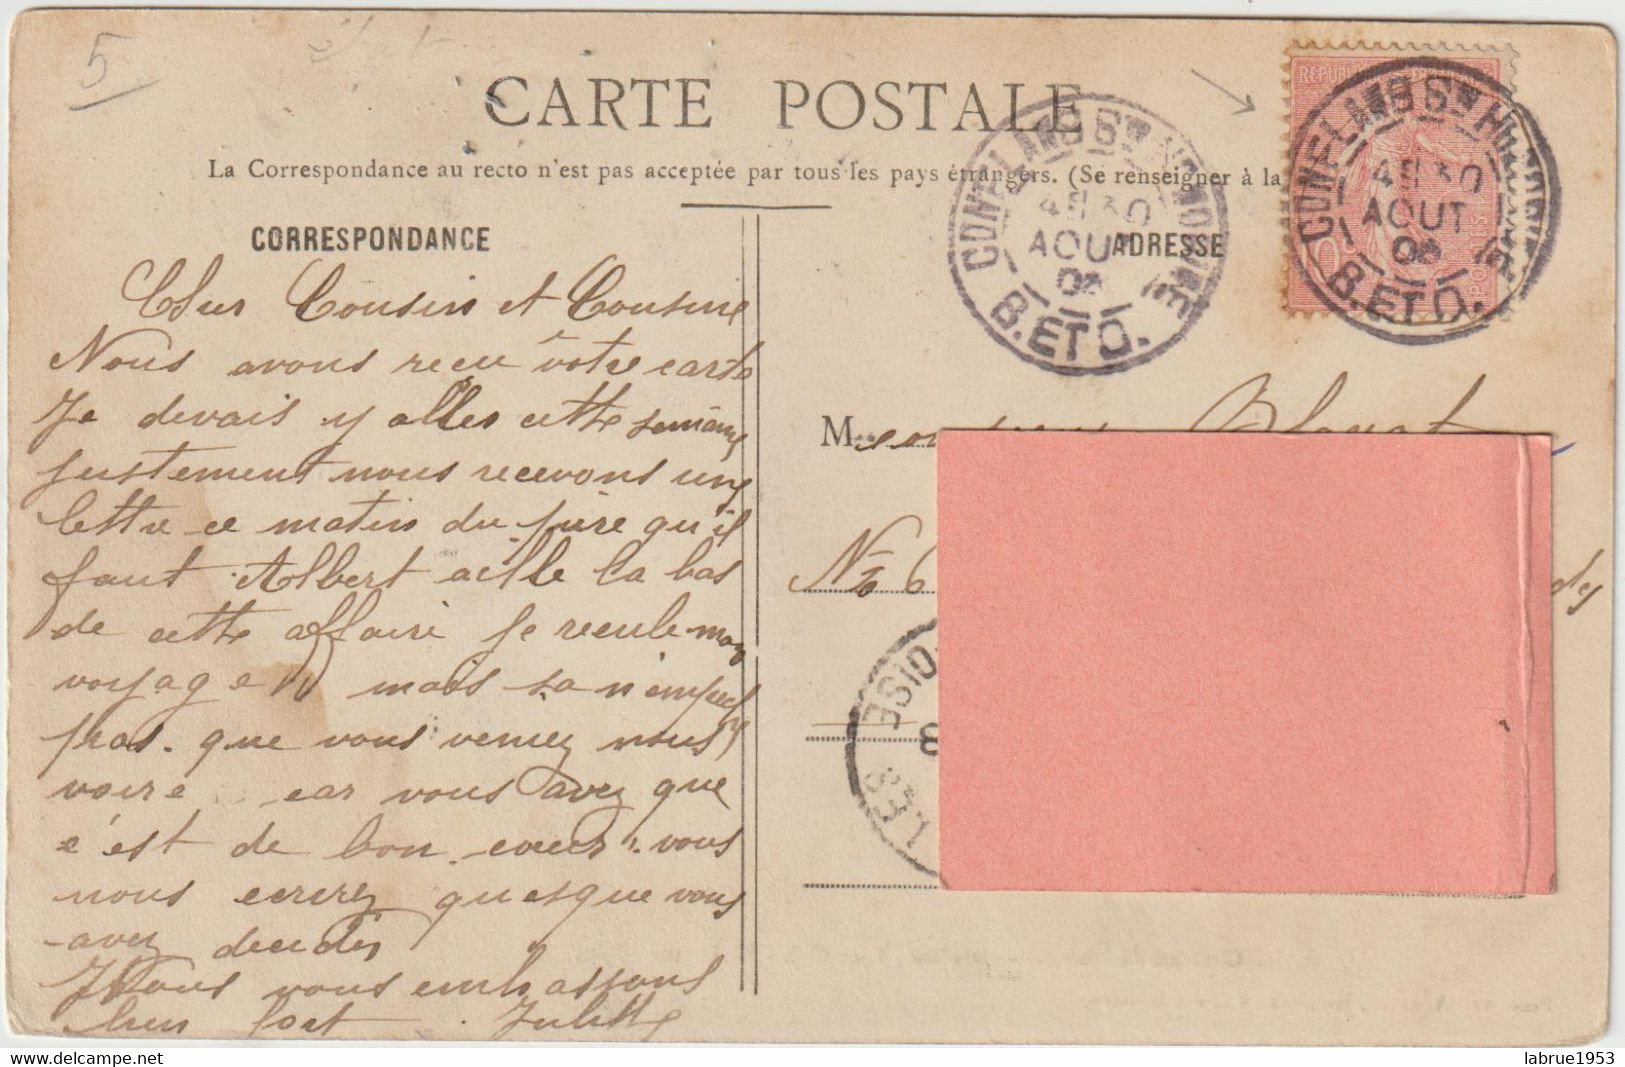 5
CARTE POSTALE
La Correspondance au recto n'est pas acceptée par tous les pays étrangers. (Se renseigner à la
CORRESPONDANCE
ADRESSE
CONFLANS Ste HONORINE
4E 30
AOUT
06
S. ET O.
CONFLANS Ste HONORINE
4E 30
AOUT
06
S. ET O.
Cher Cousin et Cousine
Nous avons recu votre carte
Je devais y aller cette semaine
justement nous recevons une
lettre ce matin du père qu'il
faut Albert aille la bas
de cette affaire je recule mon
voyage mais sa n'empech
pas que vous veniez nous
voire car vous avez que
c'est de bon coeur vous
nous ecrirez quesque vous
avez decides
Nous vous embrassons
bien fort. Juliette
Monsieur
No 6
des
OISE
LES
labrue1953